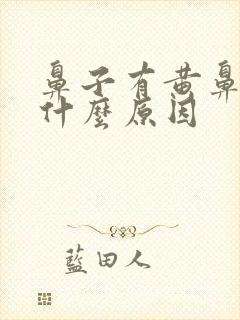 鼻子有黄鼻
什麼原因
藍田人